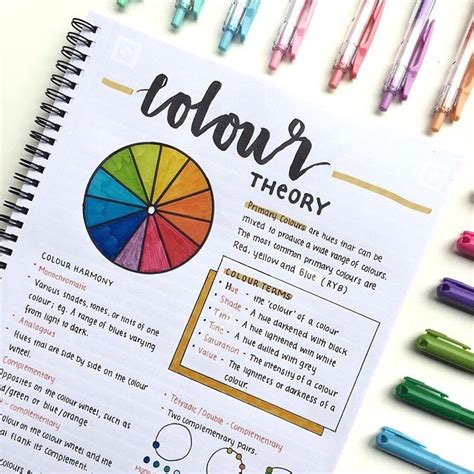 colour
THEORY
Primary Colours are hues that can be
mixed to produce a wide range of colours.
The most common primary colours are
Red, yellow and Blue (RYB)
COLOUR TERMS
Hue - the 'colour' of a colour
Shade - A hue darkened with black
Tint - A hue lightened with white
Tone - A hue dulled with grey
Saturation - The intensity of a colour
Value - The lightness or darkness of a
colour.
COLOUR HARMONY
• Monochromatic
Various shades, tones, or tints of one
colour; eg. A range of blues varying
from light to dark.
• Analogous
- Hues that are side by side on the colour
wheel.
Complementary
Opposites on the colour wheel, such as
/green or blue/orange
- complementary
colour on the colour wheel and the
that flank its complement.
• Tetradic/Double-Complementary
- Two complementary pairs.